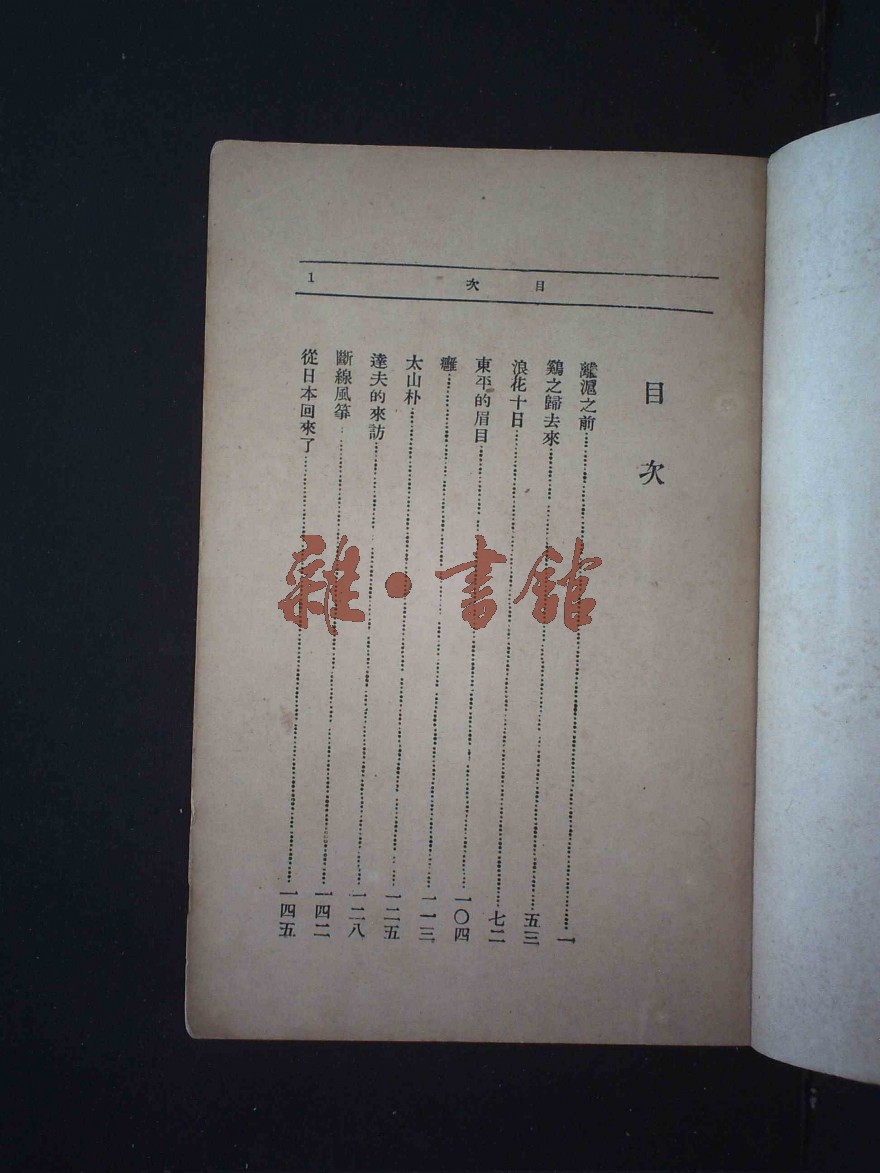 目次
1
目次
離滬之前 一
鷄之歸去來 五三
浪花十日 七二
東平的眉目 一〇四
癰 一一三
太山朴 一二五
達夫的來訪 一二八
斷線風箏 一四二
從日本回來了 一四五
雜·書館